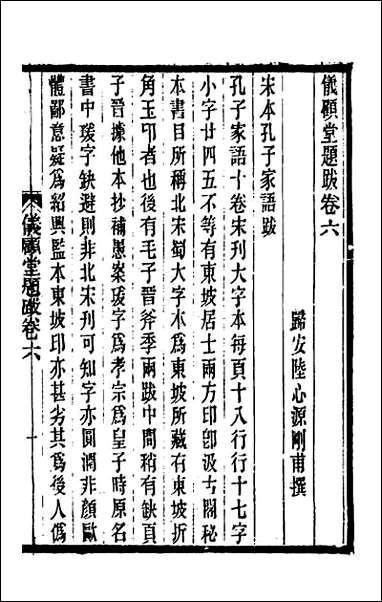 儀顧堂題跋卷六
歸安陸心源剛甫撰
宋本孔子家語跋
孔子家語十卷宋刋大字本每頁十八行行十七字
小字廿四五不等有東坡居士兩方印卽汲古閣秘
本書目所稱北宋蜀大字本為東坡所藏有東坡折
角玉印者也後有毛子晉斧季兩跋中間稍有缺頁
子晉據他本抄補愚案瑗字為孝宗為皇子時原名
書中瑗字缺避則非北宋刋可知字亦圓潤非顏歐
體鄙意疑為紹興監本東坡印亦甚劣其為後人偽
儀顧堂題跋卷六
一